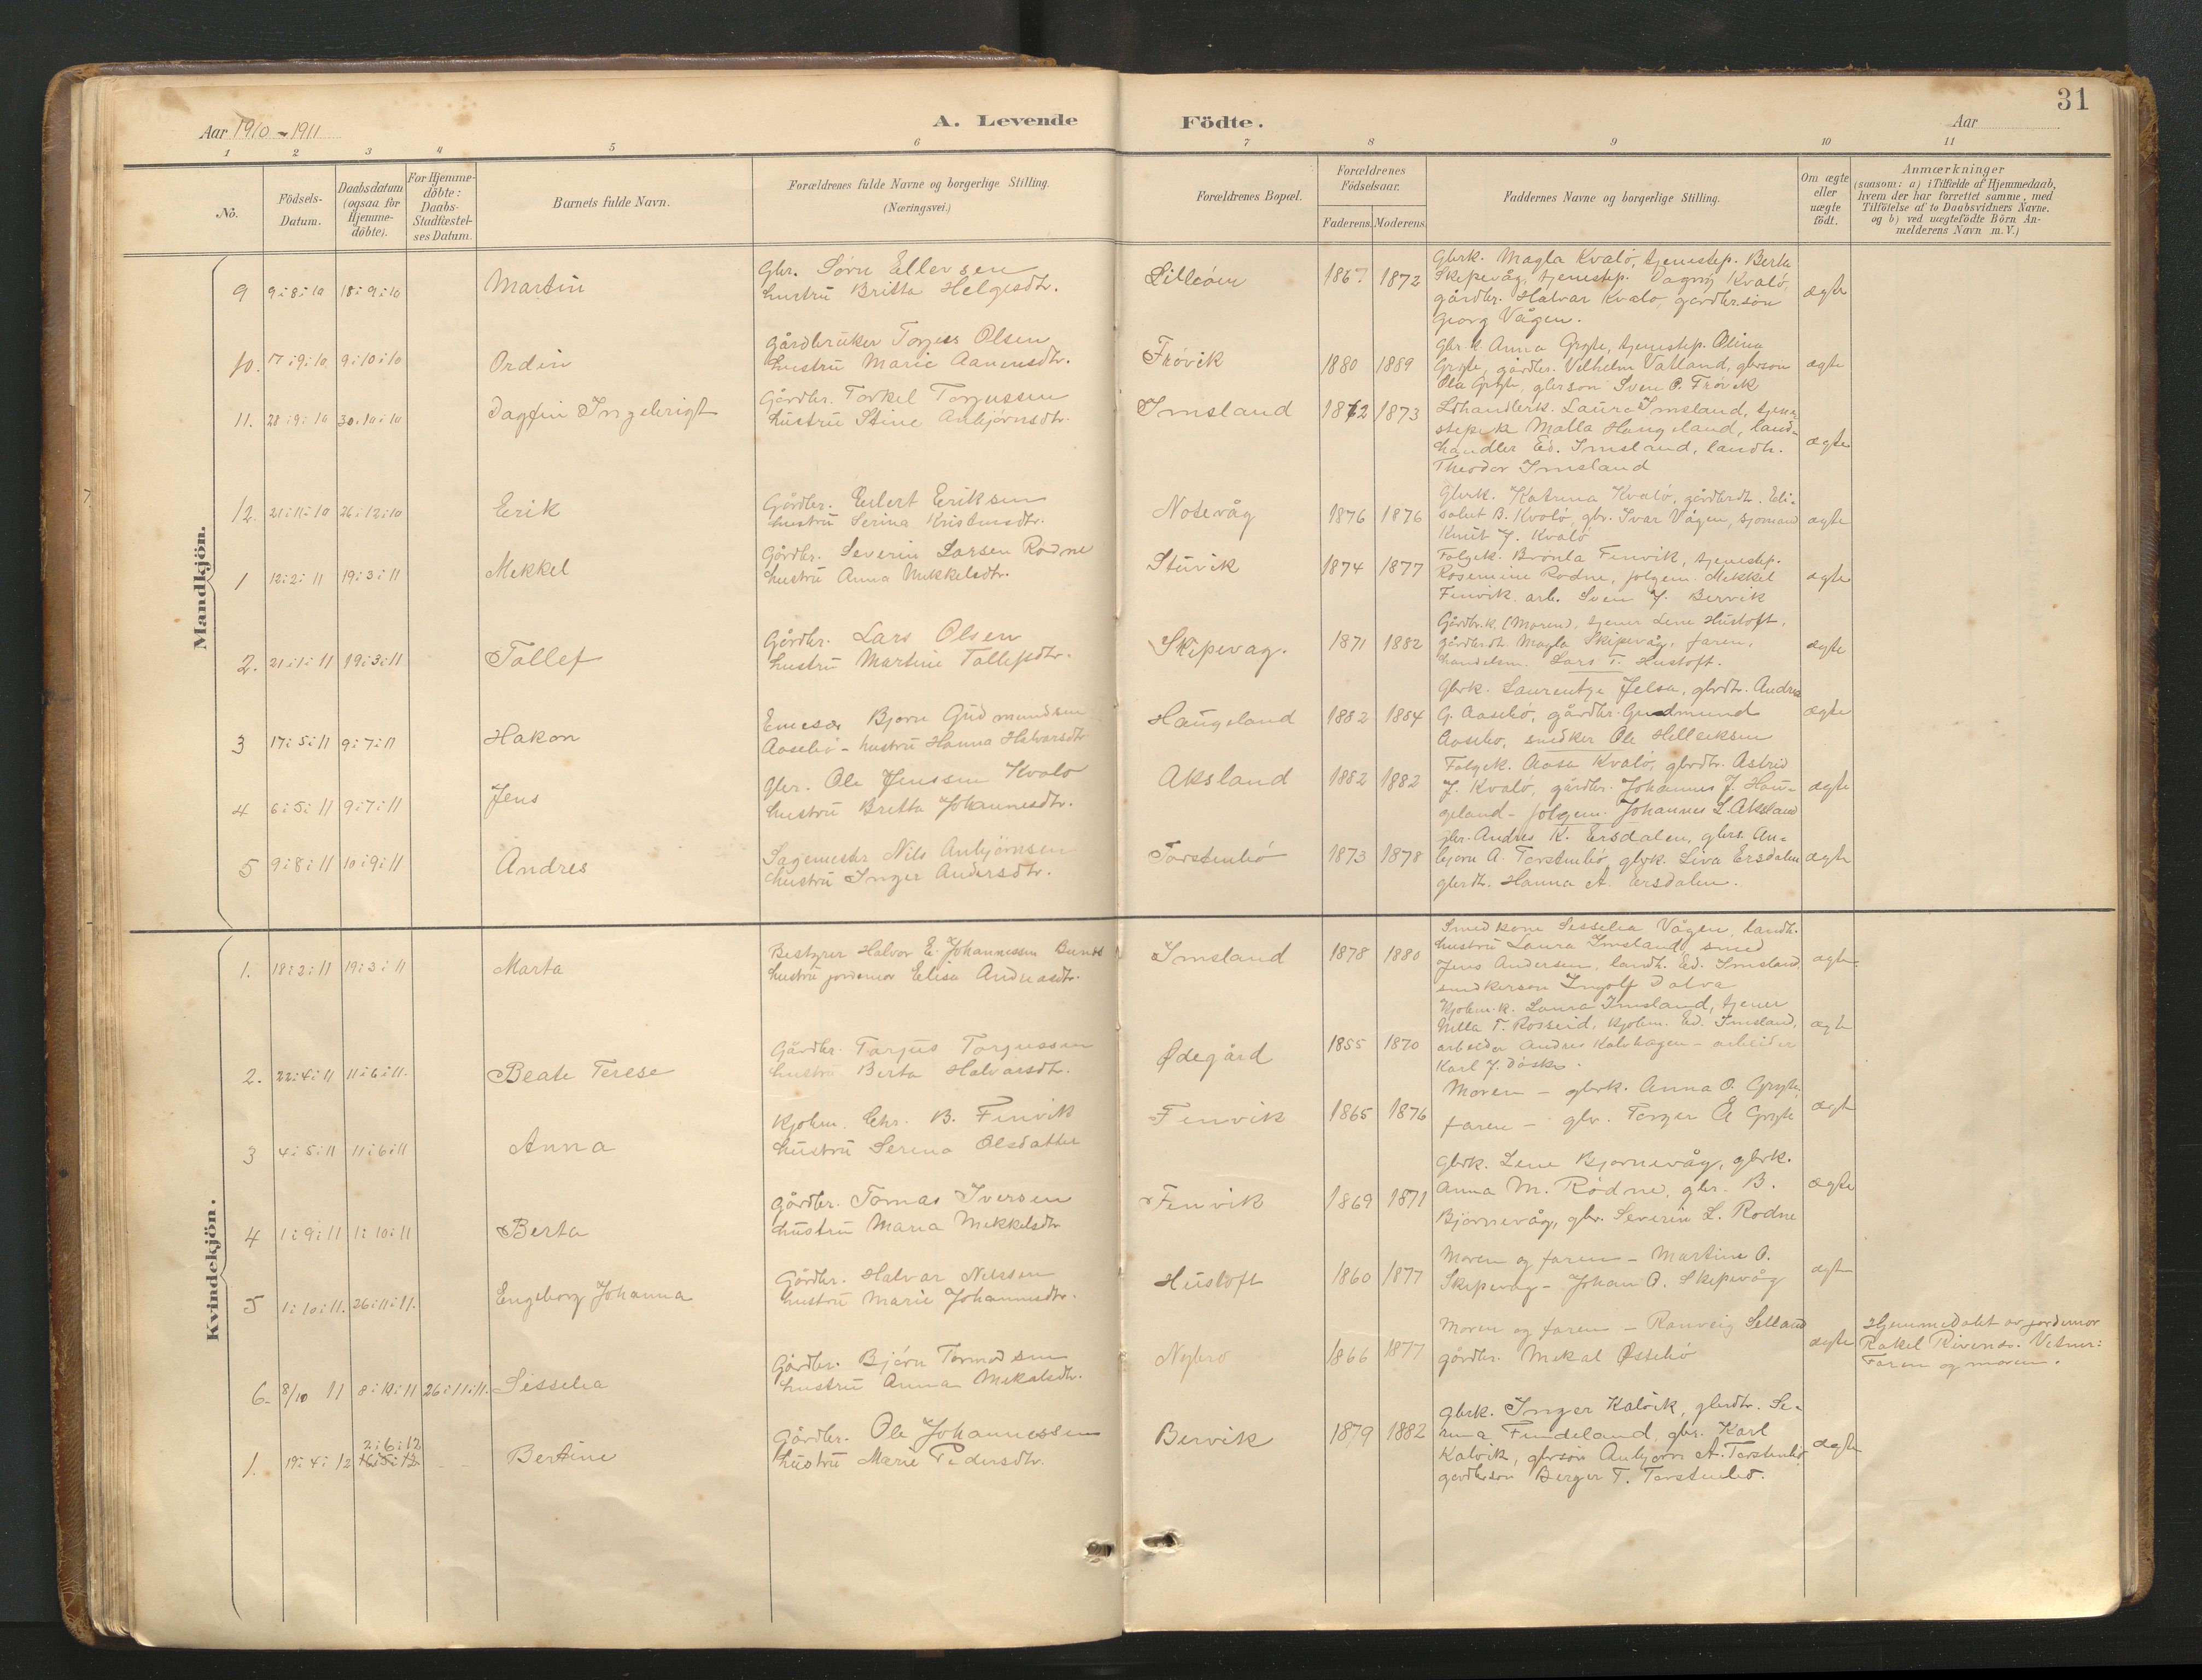 31
Aar 1910-1911
A. Levende Födte.
Aar
1 2 3 4 5 6 7 8 9 10 11
No.
Födsels-Datum.
Daabsdatum (ogsaa for Hjemme-döbte).
For Hjemme-döbte: Daabs-Stadfæstel-ses Datum.
Barnets fulde Navn.
Forældrenes fulde Navne og borgerlige Stilling.
(Næringsvei.)
Forældrenes Bopæl.
Forældrenes Födselsaar.
Faderens. Moderens.
Faddernes Navne og borgerlige Stilling.
Om ægte eller uægte födt.
Anmærkninger
(saasom: a) i Tilfælde af Hjemmedaab,
hvem der har forrettet samme, med
Tilföielse af to Daabsvidners Navne,
og b) ved uægtefödte Börn An-
melderens Navn m. V.)
Mandkjön.
9 9:8:10 18:9:10 Martin
Gbr. Sörn Ellevsen
hustru Britta Helgesdtr.
Lilleöen 1867 1872
Gbrk. Magla Kvalö, tjenestep. Berta
Skipevåg, tjenestep. Dagny Kvalö,
gårdbr. Halvar Kvalö, gårdbr.sön
Georg Vågen.
ægte
10. 17:9:10 9:10:10 Ordin
Gårdbruker Torjess Olsen
hustru Marie Aanensdtr.
Frövik 1880 1889
Gbr.k. Anna Gryte, tjenestep. Olina
Gryte, gårdbr. Vilhelm Vatland, gbrson
Ola Gryte, gbrson Sven O. Frövik
ægte
11. 28:9:10 30:10:10 Dagfin Ingebrigt
Gårdbr. Torkel Torjussen
hustru Stine Anbjörnsdtr.
Imsland 1872 1873
Ldhandlerk. Laura Imsland, tjene-
stepik Malla Haugeland, land-
handler Ed. Imsland, landh.
Theodor Imsland
ægte
12. 21:11:10 26:12:10 Erik
Gårdbr. Eilert Eriksen
hustru Serina Kristensdtr.
Notevåg 1876 1876
Gbrk. Katrina Kvalö, gårdbrdt. Eli-
sabet B. Kvalö, gbr. Ivar Vågen, sjömand
Knut J. Kvalö
ægte
1 12:2:11 19:3:11 Mekkel
Gårdbr. Severin Larsen Rödne
hustru Anna Mekkelsdtr.
Stuvik 1874 1877
Folgek. Brönla Fenvik, tjenestep.
Rosemine Rodne, folgem. Mekkel
Fenvik arb. Sven J. Bervik
ægte
2. 21:1:11 19:3:11 Tallef
Gårdbr. Lars Olsen
hustru Martine Tallefsdtr.
Skipevag. 1871 1882
Gårdbr.k. (Moren), tjener Lene Hustoft,
gårdbrdt. Magla Skipevåg, faren,
handelsm. Lars T. Hustoft.
ægte
3 17:5:11 9:7:11 Hakon
Bjorn Gudmundsen
Aasebö - hustru Hanna Halvarsdtr.
Haugeland 1882 1884
Gbrk. Laurentze Jelsa, gbrdtr. Andrea
G. Aasebö, gårdbr. Gudmund
Aasebo, snedker Ole Helleiksen
ægte
4 6:5:11 9:7:11 Jens
Gbr. Ole Jenssen Kvalo
hustru Britta Johannesdtr.
Aksland 1882 1882
Folgek. Aasa Kvalö, gbrdtr. Astrid
J. Kvalö, gårdbr. Johannes J. Hau-
geland - folgem. Johannes L. Aksland
ægte
5 9:8:11 10:9:11 Andres
Sagemester Nils Anbjörnsen
hustru Inger Andersdtr.
Torstenbö 1873 1878
gbr. Andres K. Ersdalen, gbrs. An-
bjorn A. Torstenbö, gbrk. Siva Ersdalen
gbrdt. Hanna A. Ersdalen.
ægte
Kvindekjön.
1. 18:2:11 19:3:11 Marta
Bestyrer Halvor E. Johannessen
hustru jordemor Elisa Andreasdtr.
Imsland 1878 1880
Smedkone Sesselia Vågen, landh.
hustru Laura Imsland, smed
Jens Andersen, landh. Ed. Imsland
snedkerson Ingolf Dalva
ægte.
2. 22:4:11 11:6:11. Beate Terese
Gårdbr. Torjus Torjussen
hustru Berta Halvarsdtr.
Ødegård 1855 1870
Kjobm.k. Laura Imsland, tjener
Nilla T. Rosseid, kjobm. Ed. Imsland,
arbeider Andres Kalvhagen - arbeider
Karl J.
ægte
3 4:5:11 11:6:11 Anna
Kjobm. Chr. B. Fenvik
hustru Serina Olsdatter
Fenvik 1865 1876
Moren - gbrk. Anna O. Gryte,
faren - gbr. Torger Gryte
ægte
4 1:9:11 1:10:11 Berta
Gårdbr. Tomas Iversen
hustru Maria Mekkelsdtr
Fenvik 1869 1871
Gbrk. Lene Bjornevåg, gbrk.
Anna M. Rödne, gbr. B.
Bjornevåg, gbr. Severin L. Rodne
ægte
5 1:10:11. 26:11:11. Engeborg Johanna
Gårdbr. Halvar Nilssen
hustru Marie Johannesdtr.
Hustoft 1860 1877
Moren og faren - Martine O.
Skipevag - Johan O. Skipevåg
ægte
6. 8/10 11 8:10:11 26:11:11. Sisselia
Gårdbr. Björn Tormodsen
hustru Anna Mekalsdtr.
Nybro 1866 1877
Moren og faren - Ranveig Selland
gårdbr. Mekal Össebö
ægte
Hjemmedöbt av jordemor
Rakel Rivenes. Vitner:
Faren og moren.
1. 19:4:12 2:6:12 16:5:12 Bertine
Gårdbr. Ole Johannessen
hustru Marie Pedersdtr.
Bervik 1879 1882
Gbrk. Inger Kalvik, gbrdtr. Se-
rina Fundeland, gbr. Karl
Kalvik, gbrsön Anbjorn A. Torstenbö
gardbrson Berger T. Torstenbö.
ægte